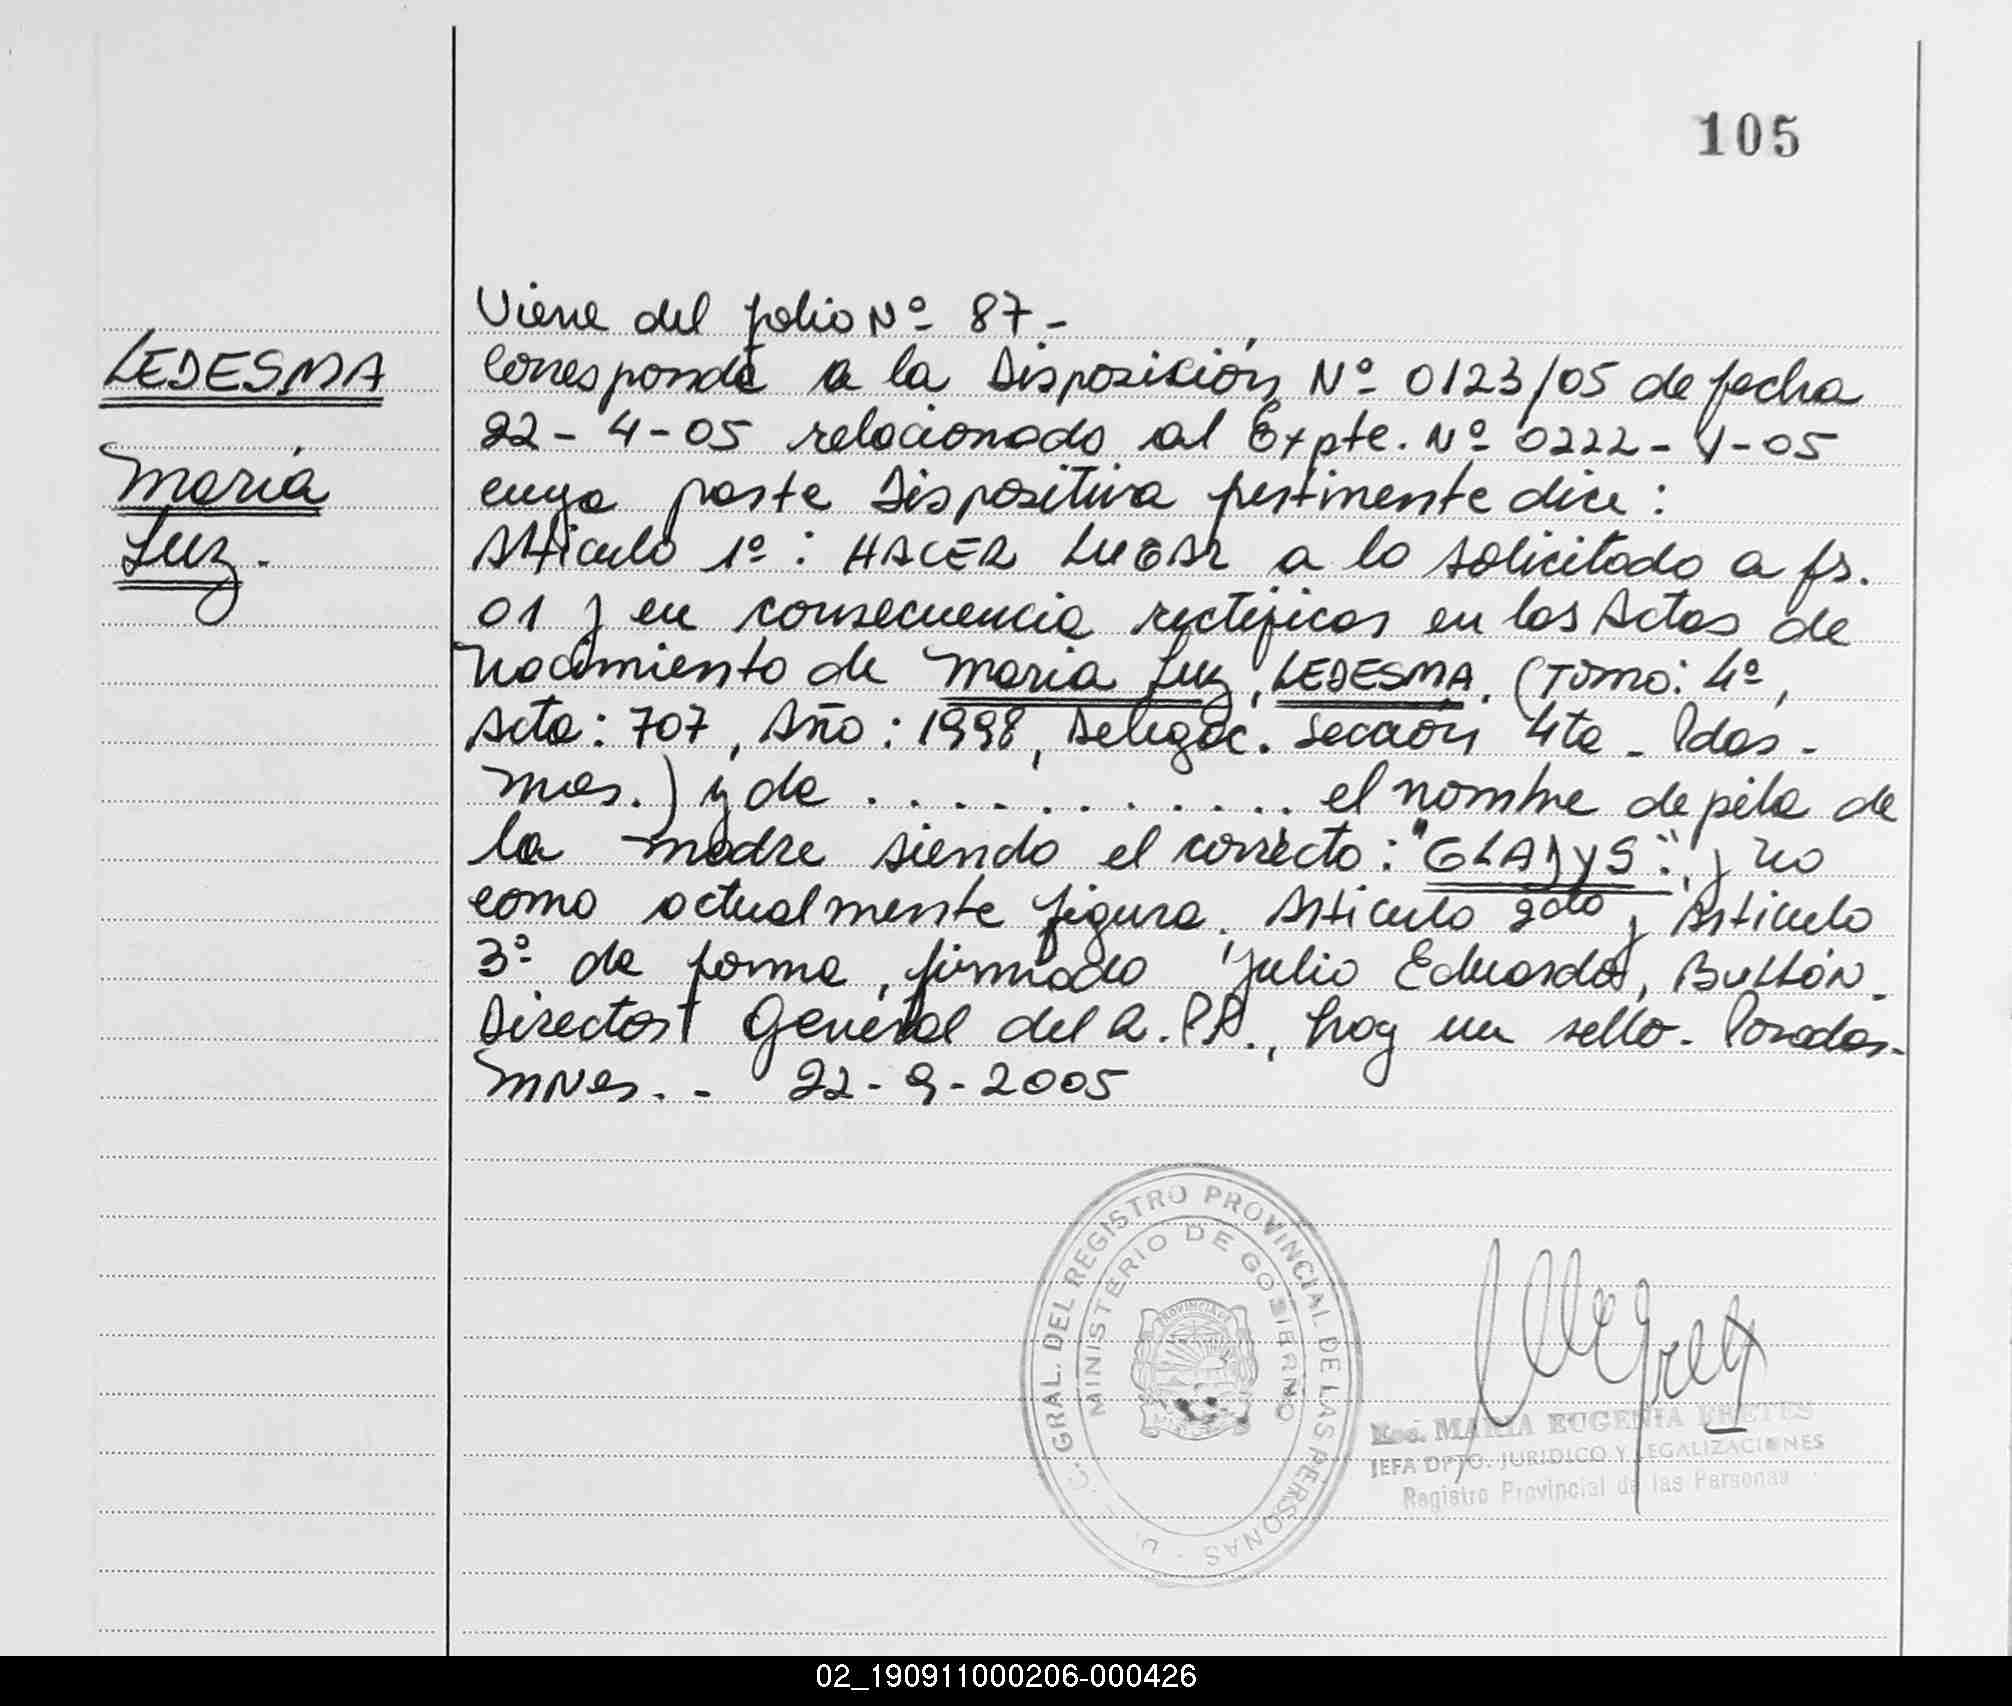 105
LEDESMA
María
Luz.
Viene del folio Nº 87-
Corresponde a la Disposición Nº 0123/05 de fecha
22-4-05 relacionado al Expte. Nº 0222-V-05
cuya parte Dispositiva pertinente dice:
Artículo 1º: HACER LUGAR a lo solicitado a fs.
01 y en consecuencia rectificar en las Actas de
Nacimiento de María Luz, LEDESMA. (Tomo: 4º,
Acta: 707, Año: 1998, Delegac. Sección 4ta - Pdas-
Mnes.) y de . . . . . . . . . . . el nombre de pila de
la madre siendo el correcto: "GLADYS", y no
como actualmente figura. Artículo 2do y Artículo
3º de forma, firmado Julio Eduardo, BULLÓN-
Director General del R.P.P., hay un sello. Posadas-
MNes.- 22-9-2005
D. G. GRAL. DEL REGISTRO PROVINCIAL DE LAS PERSONAS
MINISTERIO DE GOBIERNO
PROVINCIA DE
Esc. MARIA EUGENIA FRETES
JEFA DPTO. JURIDICO Y LEGALIZACIONES
Registro Provincial de las Personas
02_190911000206-000426